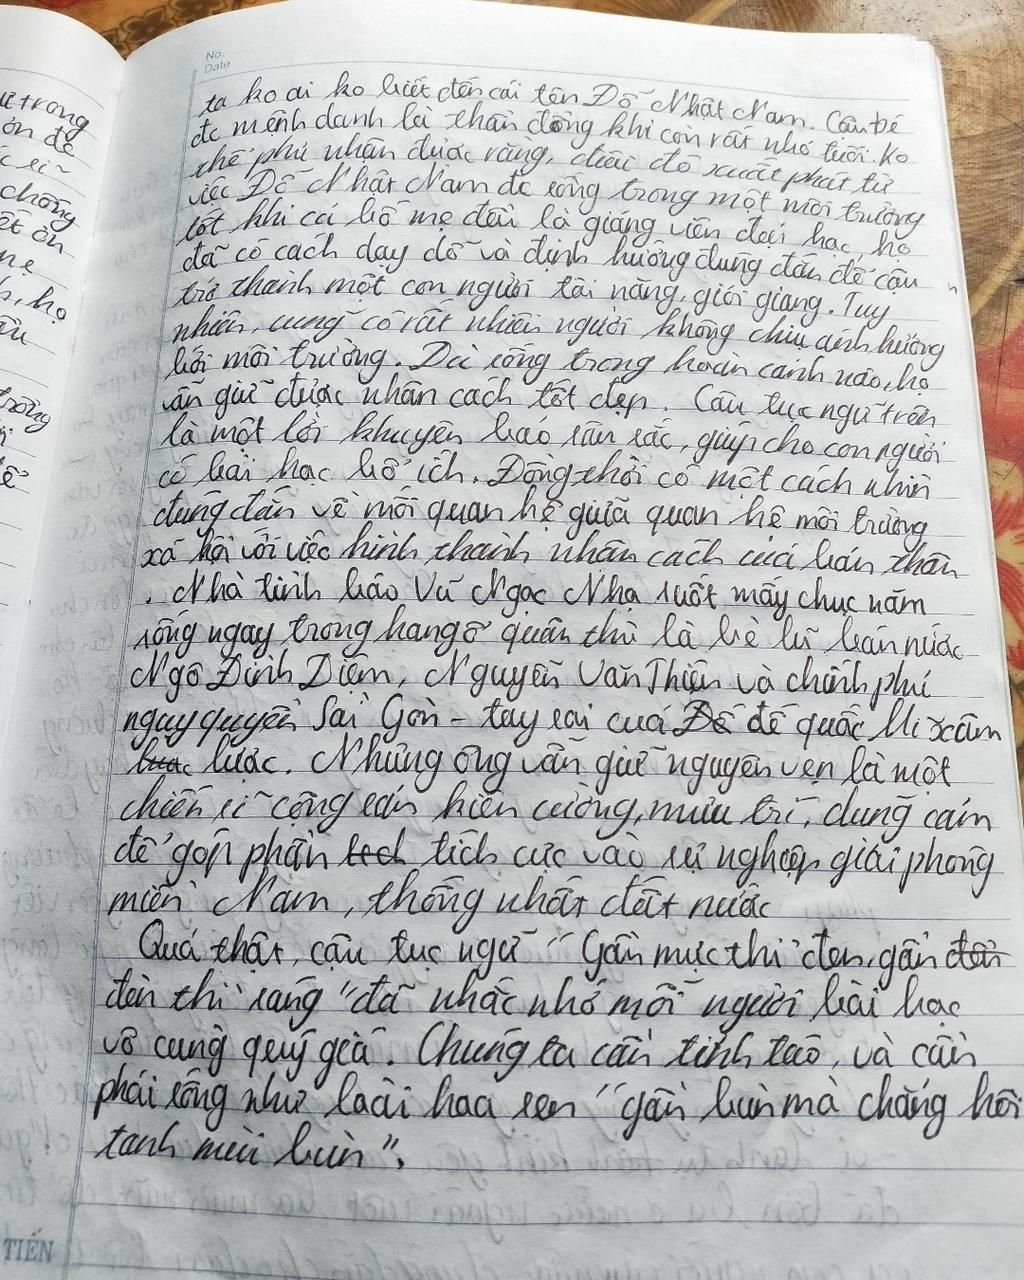 No.
Date
ta ko ai ko biết đến cái tên Đỗ Nhật Nam. Cậu bé
đc mệnh danh là thần đồng khi còn rất nhỏ tuổi. Ko
thể phủ nhận được rằng, điều đó xuất phát từ
việc Đỗ Nhật Nam đc sống trong một môi trường
tốt khi cả bố mẹ đều là giảng viên đại học, họ
đã có cách dạy dỗ và định hướng đúng đắn để cậu
trở thành một con người tài năng, giỏi giang. Tuy
nhiên, cũng có rất nhiều người không chịu ảnh hưởng
bởi môi trường. Dù sống trong hoàn cảnh nào, họ
vẫn giữ được nhân cách tốt đẹp. Câu tục ngữ trên
là một lời khuyên bảo sâu sắc, giúp cho con người
có bài học bổ ích. Đồng thời có một cách nhìn
đúng đắn về mối quan hệ giữa quan hệ môi trường
xã hội với việc hình thành nhân cách của bản thân
. Nhà tình báo Vũ Ngọc Nhạ suốt mấy chục năm
sống ngay trong hang ổ quân thù là bè lũ bán nước
Ngô Đình Diệm, Nguyễn Văn Thiện và chính phủ
ngụy quyền Sài Gòn - tay sai của đế quốc Mĩ xâm
lược. Nhưng ông vẫn giữ nguyên vẹn là một
chiến sĩ cộng sản kiên cường, mưu trí, dũng cảm
để góp phần tích cực vào sự nghiệp giải phóng
miền Nam, thống nhất đất nước
Quả thật, câu tục ngữ "Gần mực thì đen, gần
đèn thì sáng" đã nhắc nhở mỗi người bài học
vô cùng quý giá. Chúng ta cần tỉnh táo, và cần
phải sống như loài hoa sen "gần bùn mà chẳng hôi
tanh mùi bùn".
TIẾN